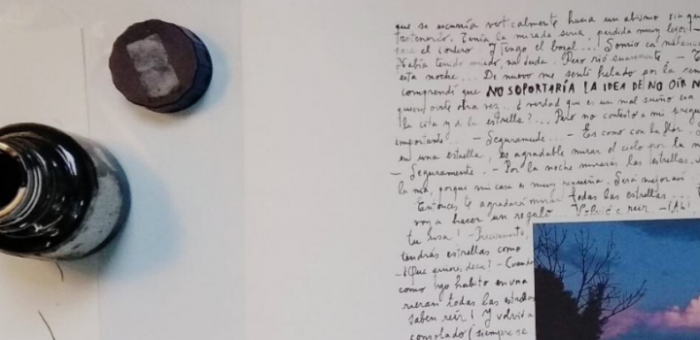 que se escurría verticalmente hacia un abismo sin que
Tenía la mirada seria, perdida muy lejos! -
para el cordero. Y tengo el bozal...! Sonrió
Había tenido miedo, sin duda. Pero rió suavemente. -
esta noche... De nuevo me sentí helado por la
comprendí que NO SOPORTARÍA LA IDEA DE NO OÍR
oírte otra vez... ¿verdad que es un mal sueño eso
la cita y de la estrella?... Pero no contestó a mi
importante... - Seguramente... - Es como con la flor.
en una estrella, es agradable mirar el cielo por la
- Seguramente. - Por la noche mirarás las estrellas.
la mía, porque mi casa es muy pequeña. Será mejor así.
Entonces te agradará mirar todas las estrellas...
voy a hacer un regalo. Volvió a reír. - ¡Ah!
tu risa! - Precisamente,
tendrás estrellas como
- ¿Qué quieres decir? - Cuando
como yo habito en una
rieran todas las estrellas
saben reír! Y volvió a
consolado (siempre se